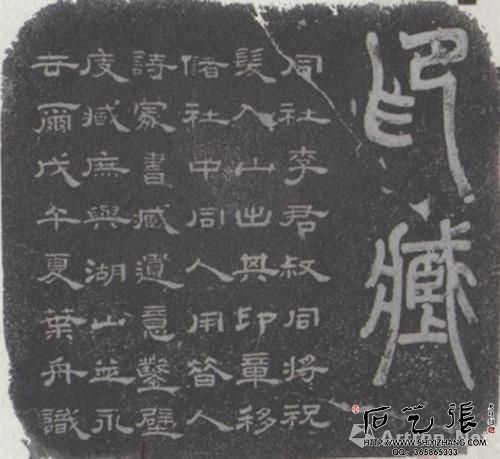 印藏
同社李君叔同將祝
髮入山出其印章移
儲社中同人用昔人
詩冢書臧遺意鑿壁
庋臧庶與湖山並永
云爾戊午夏葉舟識
石艺張
HTTP://WWW.SHIYIZHANG.COM
QQ: 365865333